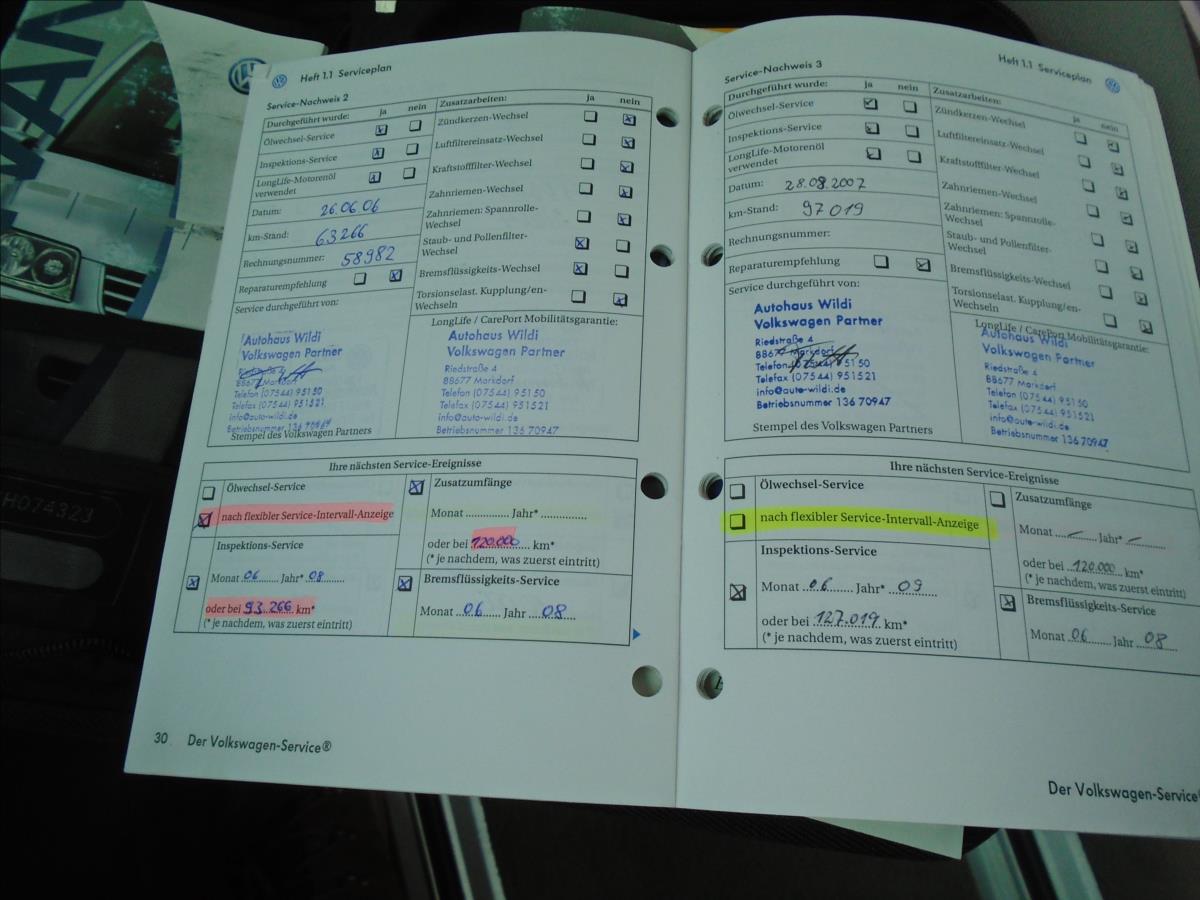 Heft 1.1 Serviceplan
Service-Nachweis 2
Durchgeführt wurde: ja nein
Ölwechsel-Service
Inspektions-Service
LongLife-Motorenöl
verwendet
Datum: 26.06.06
km-Stand: 63266
Rechnungsnummer: 58982
Reparaturempfehlung
Service durchgeführt von:
Autohaus Wildi
Volkswagen Partner
88677 Markdorf
Telefon (07544) 95150
Telefax (07544) 951521
info@auto-wildi.de
Betriebsnummer 136 70947
Stempel des Volkswagen Partners
Zusatzarbeiten: ja nein
Zündkerzen-Wechsel
Luftfiltereinsatz-Wechsel
Kraftstofffilter-Wechsel
Zahnriemen-Wechsel
Zahnriemen: Spannrolle-
Wechsel
Staub- und Pollenfilter-
Wechsel
Bremsflüssigkeits-Wechsel
Torsionselast. Kupplung/en-
Wechseln
LongLife / CarePort Mobilitätsgarantie:
Autohaus Wildi
Volkswagen Partner
Riedstraße 4
88677 Markdorf
Telefon (07544) 95150
Telefax (07544) 951521
info@auto-wildi.de
Betriebsnummer 136 70947
Ihre nächsten Service-Ereignisse
Ölwechsel-Service
nach flexibler Service-Intervall-Anzeige
Inspektions-Service
Monat 06 Jahr* 08
oder bei 93.266 km*
(* je nachdem, was zuerst eintritt)
Zusatzumfänge
Monat .............. Jahr* ..............
oder bei 120.000 km*
(* je nachdem, was zuerst eintritt)
Bremsflüssigkeits-Service
Monat 06 Jahr 08
30 Der Volkswagen-Service®
Heft 1.1 Serviceplan
Service-Nachweis 3
Durchgeführt wurde: ja nein
Ölwechsel-Service
Inspektions-Service
LongLife-Motorenöl
verwendet
Datum: 28.08.2007
km-Stand: 97019
Rechnungsnummer:
Reparaturempfehlung
Service durchgeführt von:
Autohaus Wildi
Volkswagen Partner
Riedstraße 4
88677 Markdorf
Telefon (07544) 95150
Telefax (07544) 951521
info@auto-wildi.de
Betriebsnummer 136 70947
Stempel des Volkswagen Partners
Zusatzarbeiten: ja nein
Zündkerzen-Wechsel
Luftfiltereinsatz-Wechsel
Kraftstofffilter-Wechsel
Zahnriemen-Wechsel
Zahnriemen: Spannrolle-
Wechsel
Staub- und Pollenfilter-
Wechsel
Bremsflüssigkeits-Wechsel
Torsionselast. Kupplung/en-
Wechseln
LongLife / CarePort Mobilitätsgarantie:
Autohaus Wildi
Volkswagen Partner
Riedstraße 4
88677 Markdorf
Telefon (07544) 95150
Telefax (07544) 951521
info@auto-wildi.de
Betriebsnummer 136 70947
Ihre nächsten Service-Ereignisse
Ölwechsel-Service
nach flexibler Service-Intervall-Anzeige
Inspektions-Service
Monat 06 Jahr* 09
oder bei 127.019 km*
(* je nachdem, was zuerst eintritt)
Zusatzumfänge
Monat ..... Jahr* .....
oder bei 120.000 km*
(* je nachdem, was zuerst eintritt)
Bremsflüssigkeits-Service
Monat 06 Jahr 08
Der Volkswagen-Service®
H074323